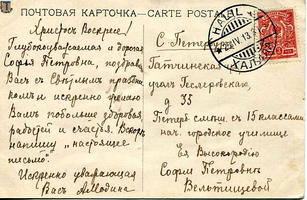 ПОЧТОВАЯ КАРТОЧКА — CARTE POSTALE
Христосъ Воскресе!
Глубокоуважаемая и дорогая
Софья Петровна, поздравляю
Васъ съ Свѣтлымъ праздни
комъ и искренно желаю
Вамъ побольше здоровья
радостей и счастья. Вскорѣ
напишу „настоящее
письмо".
Искренно уважающая
Васъ
С Петербургъ
Гатчинская
уголъ
д 35
Петербургск. съ 15 классами
нач. городское училище
Ея Высокородію
Софьѣ Петровнѣ